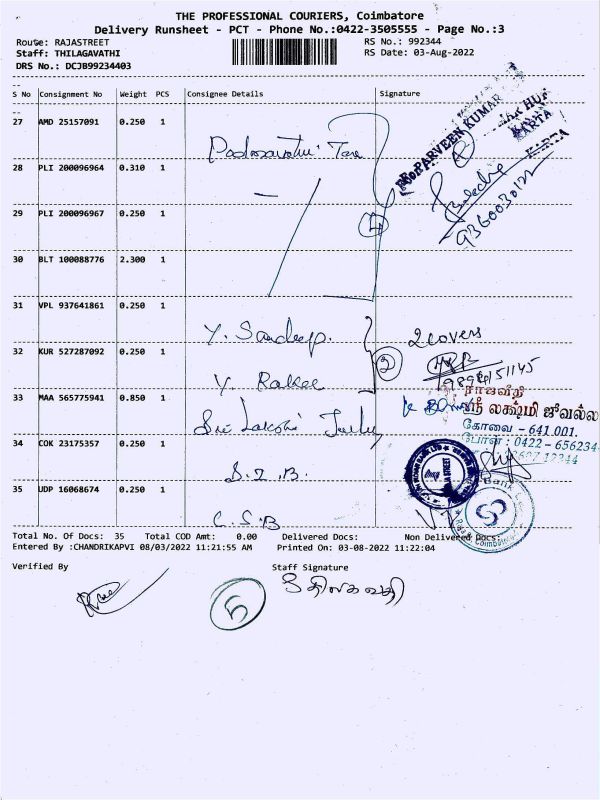 THE PROFESSIONAL COURIERS, Coimbatore
Delivery Runsheet - PCT - Phone No.:0422-3505555 - Page No.:3
Route: RAJASTREET RS No.: 992344
Staff: THILAGAVATHI RS Date: 03-Aug-2022
DRS No.: DCJB99234403
S No Consignment No Weight PCS Consignee Details Signature
27 AMD 25157091 0.250 1
PARVEEN KUMAR
KARTA
28 PLI 200096964 0.310 1
29 PLI 200096967 0.250 1
9360030122
4
30 BLT 100088776 2.300 1
31 VPL 937641861 0.250 1
Y. Sandeep. 2 covers
32 KUR 527287092 0.250 1
2
Y. Rakee
33 MAA 565775941 0.850 1
ராஜவீதி
ஸ்ரீ லக்ஷ்மி ஜுவல்ல
Sri Lakshi
கோவை - 641.001.
போன் : 0422 - 656234
34 COK 23175357 0.250 1
S.I.B.
35 UDP 16068674 0.250 1
C.S.B
Total No. Of Docs: 35 Total COD Amt: 0.00 Delivered Docs: Non Delivered Docs:
Entered By :CHANDRIKAPVI 08/03/2022 11:21:55 AM Printed On: 03-08-2022 11:22:04
Verified By Staff Signature
5